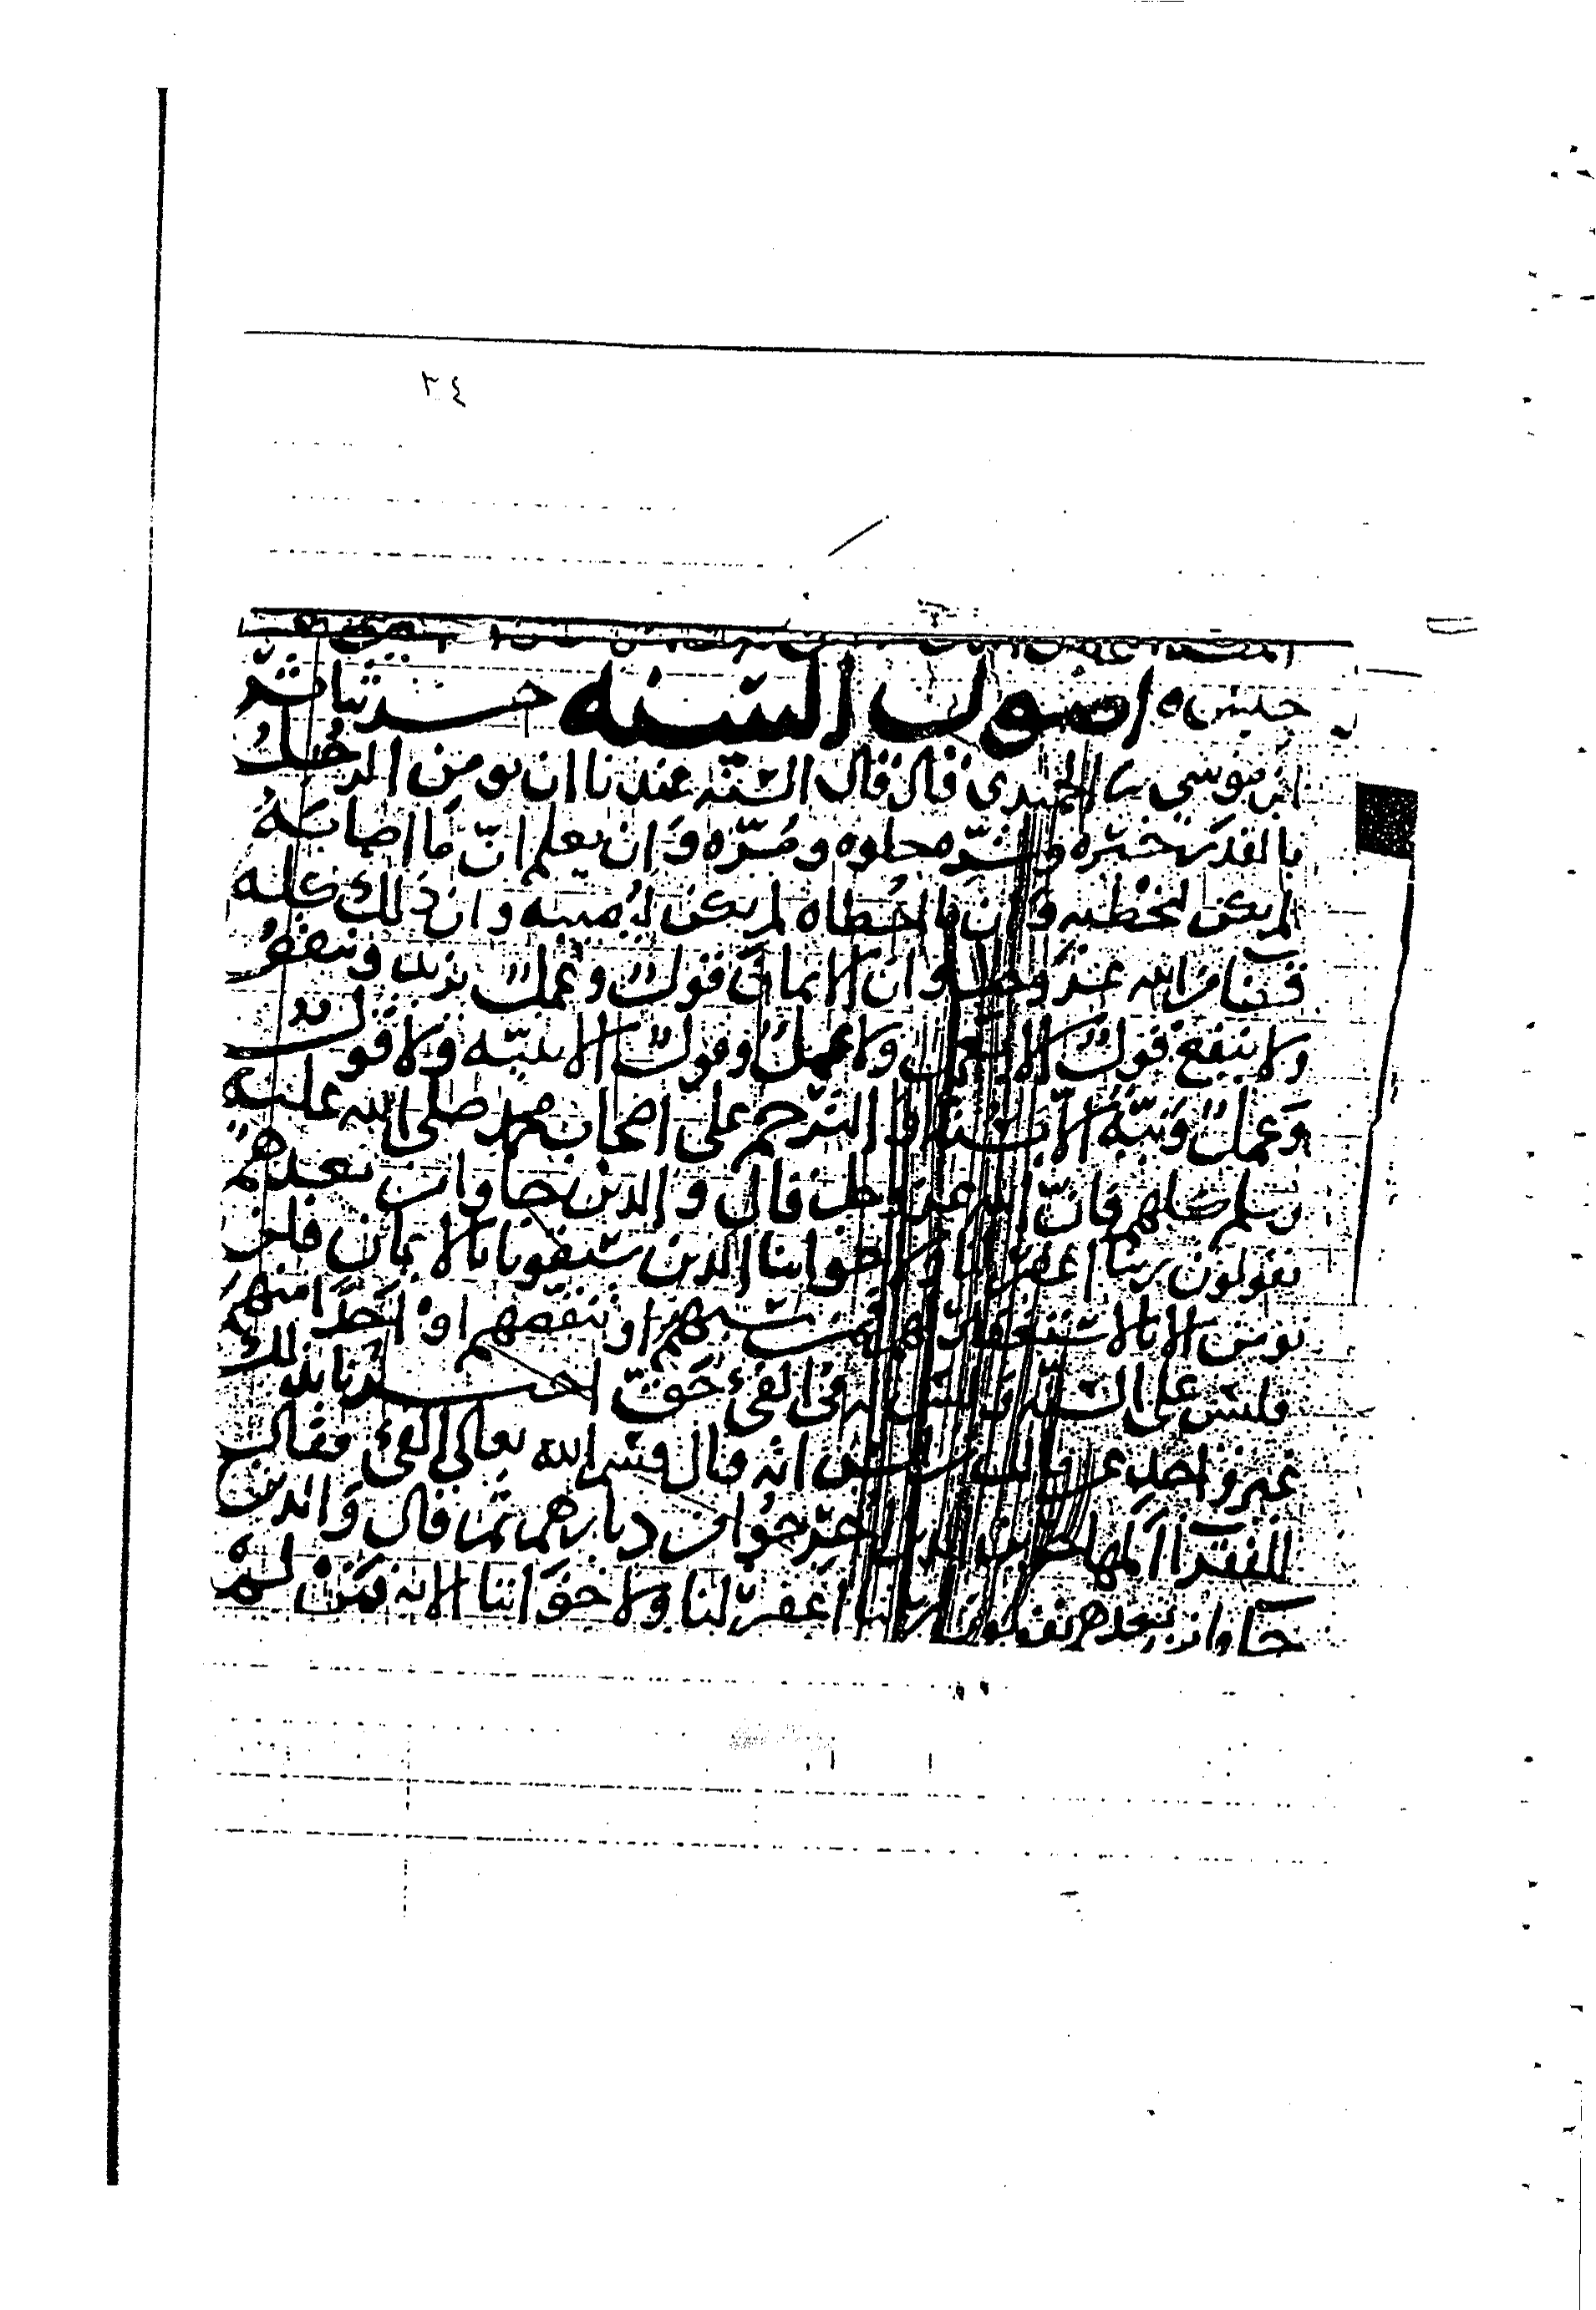 ٣٤
اصول السنه حدثنا بشر
ابن موسى ثنا الحميدي قال قال السنه عندنا ان يومن الرجل
بالقدر خيره وشره حلوه ومره وان يعلم ان ما اصابه
لم يكن ليخطيه وان ما اخطاه لم يكن ليصيبه وان ذلك كله
قضا من الله عز وجل وان الايمان قول وعمل يزيد وينقص
ولا ينفع قول الا بعمل ولا عمل وقول الا بنيه ولا قول
وعمل ونيه الا بسنه والترحم على اصحاب محمد صلى الله عليه
وسلم كلهم فان الله عز وجل قال والذين جاوا من بعدهم
يقولون ربنا اغفر لنا ولاخواننا الذين سبقونا بالايمان فلن
يومن الا بالاستغفار لهم فمن سبهم او تنقصهم او احدا منهم
فليس على السنه وليس له في الفئ حق اخبرنا بذلك
غير واحد عن مالك بن انس انه قال قسم الله تعالى الفئ فقال
للفقرا المهاجرين الذين اخرجوا من ديارهم ثم قال والذين
جاوا من بعدهم يقولون ربنا اغفر لنا ولاخواننا الايه فمن لم